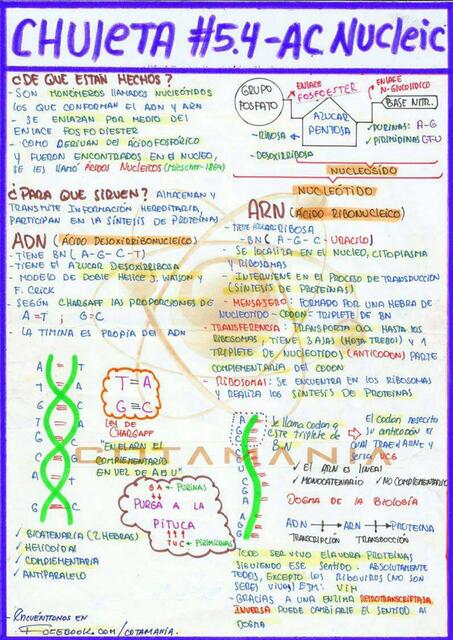 CHULETA #5.4 - AC NUCLEIC
¿DE QUE ESTAN HECHOS?
- SON MONÓMEROS LLAMADOS NUCLEÓTIDOS
LOS QUE CONFORMAN EL ADN Y ARN
- SE ENLAZAN POR MEDIO DEL
ENLACE FOSFODIESTER
- COMO DERIVAN DEL ÁCIDO FOSFÓRICO
Y FUERON ENCONTRADOS EN EL NUCLEO,
SE LES LLAMÓ ÁCIDOS NUCLEICOS (Miescher-1869)
GRUPO
FOSFATO
ENLACE
FOSFOESTER
AZUCAR
PENTOSA
ENLACE
N-GLUCOSIDICO
BASE NITR.
- RIBOSA
- DESOXIRRIBOSA
- PURINAS: A-G
- PIRIMIDINAS C-T-U
NUCLEOSIDO
NUCLEÓTIDO
¿PARA QUE SIRVEN? ALMACENAN Y
TRANSMITE INFORMACIÓN HEREDITARIA,
PARTICIPAN EN LA SÍNTESIS DE PROTEÍNAS
ADN (ÁCIDO DESOXIRRIBONUCLEICO)
- TIENE BN (A-G-C-T)
- TIENE EL AZUCAR DESOXIRRIBOSA
- MODELO DE DOBLE HELICE J. WATSON Y
F. CRICK
- SEGÚN CHARGAFF LAS PROPORCIONES DE
A=T ; G=C
- LA TIMINA ES PROPIA DE ADN
ARN (ÁCIDO RIBONUCLEICO)
- TIENE AZUCAR: RIBOSA
- BN (A-G-C-URACILO)
- SE LOCALIZA EN EL NUCLEO, CITOPLASMA
Y RIBOSOMAS
- INTERVIENE EN EL PROCESO DE TRANSDUCCIÓN
(SÍNTESIS DE PROTEÍNAS)
- MENSAJERO: FORMADO POR UNA HEBRA DE
NUCLEOTIDO - CODON = TRIPLETE DE BN
- TRANSFERENCIA: TRANSPORTA aa HASTA LOS
RIBOSOMAS, TIENE 3 AJAS (HOJA TREBOL) Y 1
TRIPLETE DE NUCLEOTIDOS (ANTICODON) PARTE
COMPLEMENTARIA DEL CODON
- RIBOSOMAL: SE ENCUENTRA EN LOS RIBOSOMAS
Y REALIZA LOS SÍNTESIS DE PROTEINAS
T = A
G ≡ C
LEY DE
CHARGAFF
"EN EL ARN EL
COMPLEMENTARIO
EN VEZ DE A ES U"
COTAMANÍA
G A → PURINAS
PURGA A LA
PITUCA
T U C → PIRIMIDINAS
✓ BICATENARIA (2 HEBRAS)
✓ HELICOIDAL
✓ COMPLEMENTARIA
✓ ANTIPARALELO
Se llama codon a
este triplete de
BN
El codon respecto
su anticodon el
cual trae el ARNt y
seria UCG
✓ EL ARN ES LINEAL
✓ MONOCATENARIO ✓ NO COMPLEMENTARIO
DOGMA DE LA BIOLOGÍA
ADN → ARN → PROTEÍNA
TRANSCRIPCIÓN TRANSDUCCIÓN
TODO SER VIVO ELAVORA PROTEÍNAS
SIGUIENDO ESE SENTIDO. ABSOLUTAMENTE
TODOS, EXCEPTO LOS RIBOVIRUS (NO SON
SERES VIVOS) EJM: VIH
- GRACIAS A UNA ENZIMA RETROTRANSCRIPTASA
INVERSA PUEDE CAMBIARLE EL SENTIDO AL
DOGMA
- ENCUÉNTRANOS EN
FACEBOOK.COM/COTAMANIA.